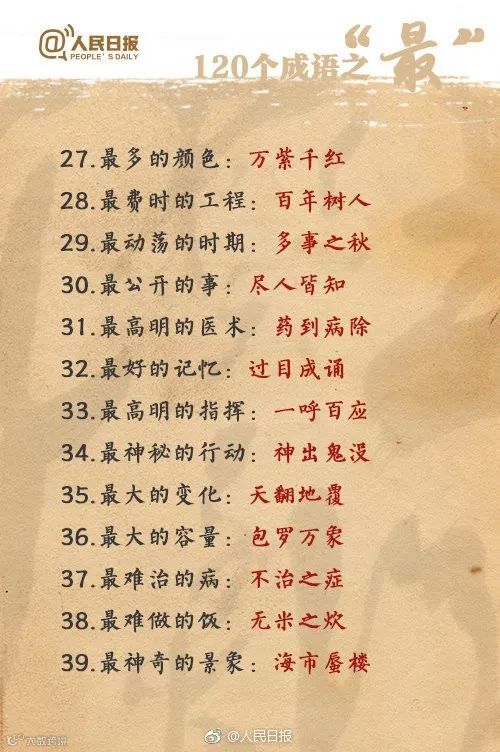 @人民日报
PEOPLE'S DAILY
120个成语之“最”
27.最多的颜色：万紫千红
28.最费时的工程：百年树人
29.最动荡的时期：多事之秋
30.最公开的事：尽人皆知
31.最高明的医术：药到病除
32.最好的记忆：过目成诵
33.最高明的指挥：一呼百应
34.最神秘的行动：神出鬼没
35.最大的变化：天翻地覆
36.最大的容量：包罗万象
37.最难治的病：不治之症
38.最难做的饭：无米之炊
39.最神奇的景象：海市蜃楼
大数跨境
@人民日报